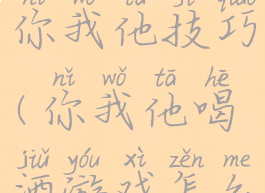 nǐ wǒ tā jì qiǎo
你我他技巧
nǐ wǒ tā hē
(你我他喝
jiǔ yóu xì zěn me
酒游戏怎么